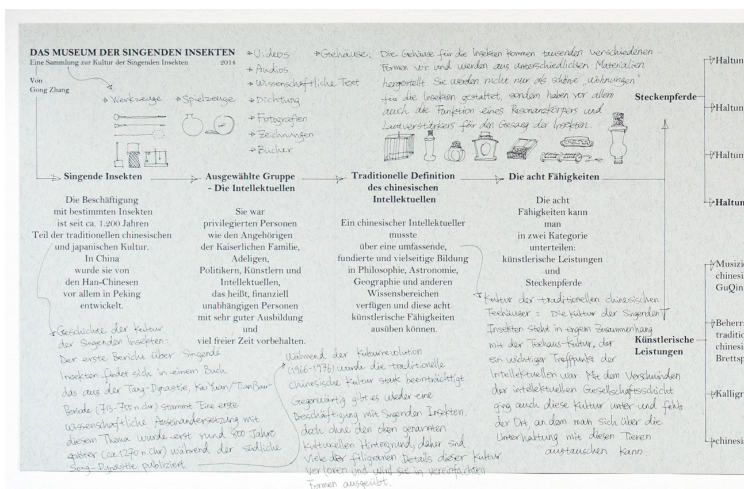 DAS MUSEUM DER SINGENDEN INSEKTEN
Eine Sammlung zur Kultur der Singenden Insekten 2014
Von
Gong Zhang
→ Werkzeuge → Spielzeuge
→ Videos
→ Audios
→ Wissenschaftliche Text
→ Dichtung
→ Fotografien
→ Zeichnungen
→ Bücher
→ Gehäuse: Die Gehäuse für die Insekten kommen tausenden verschiedenen
Formen vor und werden aus unterschiedlichen Materialien
hergestellt. Sie werden nicht nur als schöne „Wohnungen"
für die Insekten gestaltet, sondern haben vor allem
auch die Funktion eines Resonanzkörpers und
Lautverstärkers für den Gesang der Insekten.
Singende Insekten
Die Beschäftigung
mit bestimmten Insekten
ist seit ca. 1.200 Jahren
Teil der traditionellen chinesischen
und japanischen Kultur.
In China
wurde sie von
den Han-Chinesen
vor allem in Peking
entwickelt.
Geschichte der Kultur
der Singenden Insekten:
Der erste Bericht über Singende
Insekten findet sich in einem Buch
das aus der Tang-Dynastie,
stammt. Eine erste
wissenschaftliche Auseinandersetzung mit
diesem Thema wurde erst rund 500 Jahre
später (ca. 1270 n. Chr) während der südliche
Song-Dynastie publiziert.
Ausgewählte Gruppe
- Die Intellektuellen
Sie war
privilegierten Personen
wie den Angehörigen
der Kaiserlichen Familie,
Adeligen,
Politikern, Künstlern und
Intellektuellen,
das heißt, finanziell
unabhängigen Personen
mit sehr guter Ausbildung
und
viel freier Zeit vorbehalten.
Während der Kulturrevolution
(1966-1976) wurde die traditionelle
chinesische Kultur stark beeinträchtigt
Gegenwärtig gibt es wieder eine
Beschäftigung mit Singenden Insekten.
doch ohne den oben genannten
kulturellen Hintergrund, daher sind
viele der filigranen Details dieser Kultur
verloren und wird sie in vereinfachten
Formen ausgeübt.
Traditionelle Definition
des chinesischen
Intellektuellen
Ein chinesischer Intellektueller
musste
über eine umfassende,
fundierte und vielseitige Bildung
in Philosophie, Astronomie,
Geographie und anderen
Wissensbereichen
verfügen und diese acht
künstlerische Fähigkeiten
ausüben können.
Die acht Fähigkeiten
Die acht
Fähigkeiten kann
man
in zwei Kategorie
unterteilen:
künstlerische Leistungen
und
Steckenpferde
Kultur der traditionellen chinesischen
Teehäuser: Die Kultur der Singenden
Insekten steht in engem Zusammenhang
mit der Teehaus-Kultur, der
ein wichtiger Treffpunkt der
Intellektuellen war. Mit dem Verschwinden
der intellektuellen Gesellschaftsschicht
ging auch diese Kultur unter und fehlt
der Ort, an dem man sich über die
Unterhaltung mit diesen Tieren
austauschen kann
Steckenpferde
Haltun
Haltun
Haltun
Haltun
Künstlerische
Leistungen
Musizi
chinesi
GuQin
Beherr
traditio
chinesi
Brettsp
Kalligr
chines